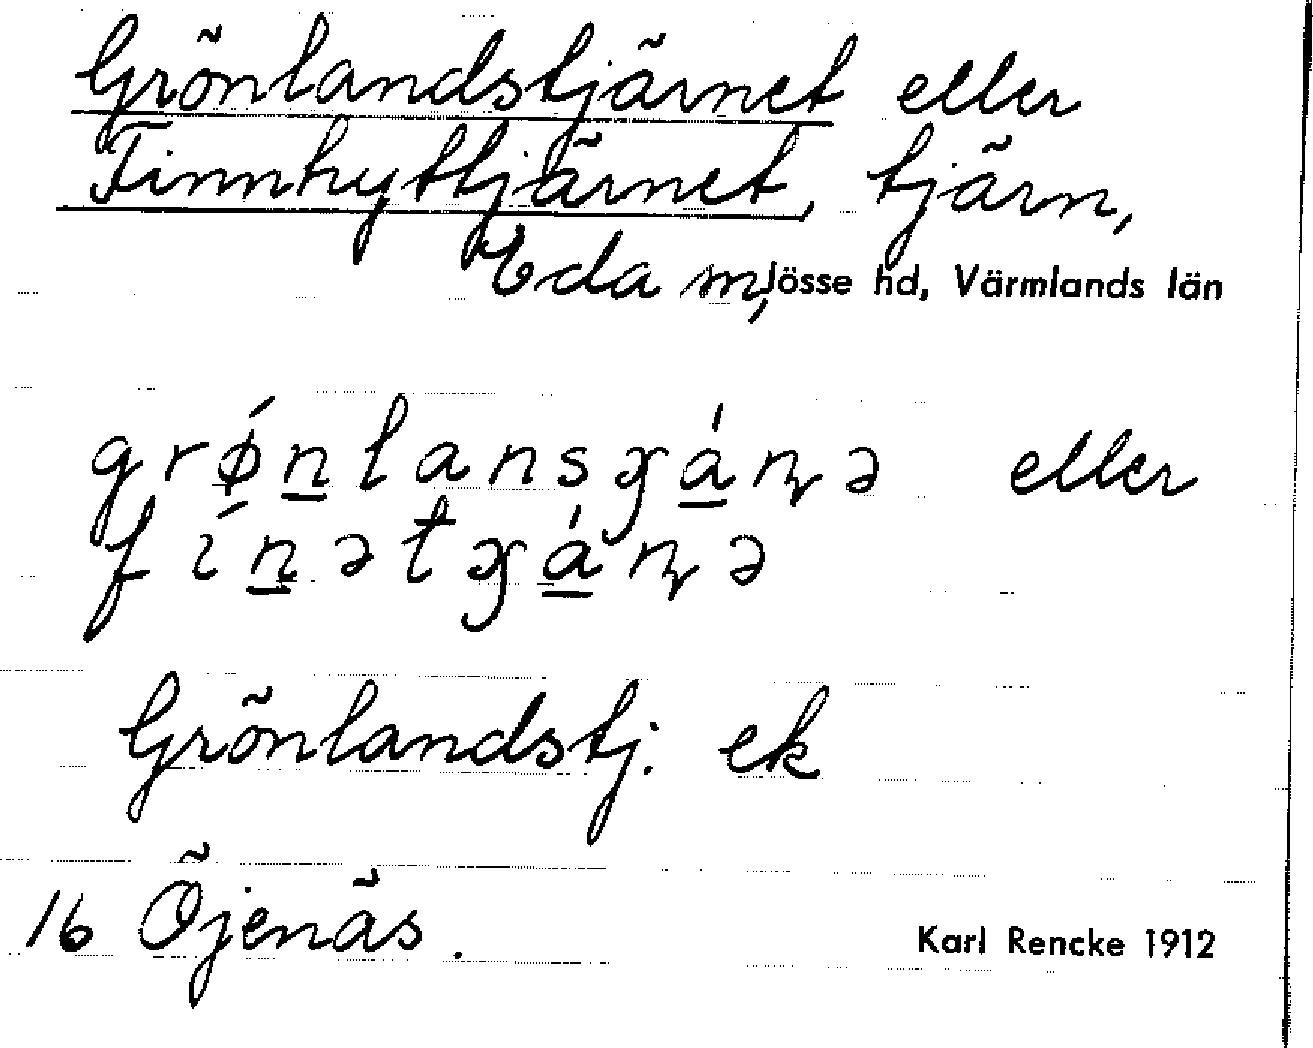 Grönlandstjärnet eller
Finnhyttjärnet, tjärn,
Eda sn, Jösse hd, Värmlands län
grǿn̲lansɡá̲ɳə eller
fín̲ətɡá̲ɳə
Grönlandstj. ek
16 Öjenäs.
Karl Rencke 1912